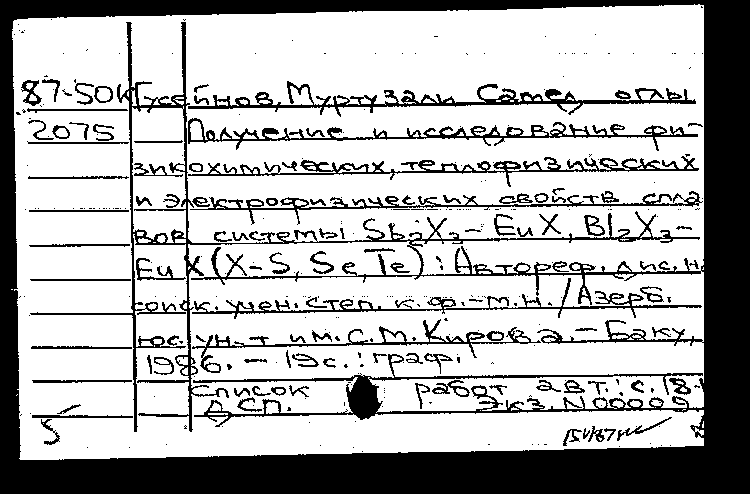 87-50к Гусейнов, Муртузали Самед оглы
2075 Получение и исследование фи-
зикохимических, теплофизических
и электрофизических свойств спла
вов системы Sb₂X₃- EuX, Bi₂X₃-
EuX (X-S, Se, Te) : Автореф. дис. н
соиск. учен. степ. к. ф.-м. н. / Азерб.
гос. ун-т им. С. М. Кирова. - Баку,
1986. - 19 с. : граф.
Список работ авт.: с. 18-
ДСП. Экз. N 00009
5